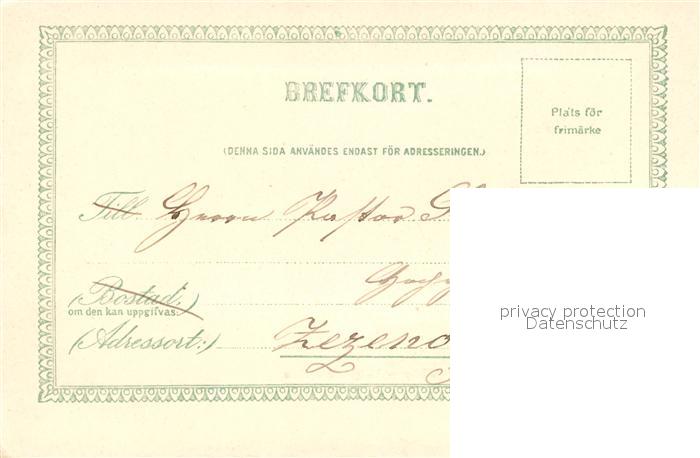 BREFKORT.
Plats för
frimärke
(DENNA SIDA ANVÄNDES ENDAST FÖR ADRESSERINGEN.)
Till Herrn Pastor
(Bostad:)
om den kan uppgifvas.
privacy protection
Datenschutz
(Adressort:)